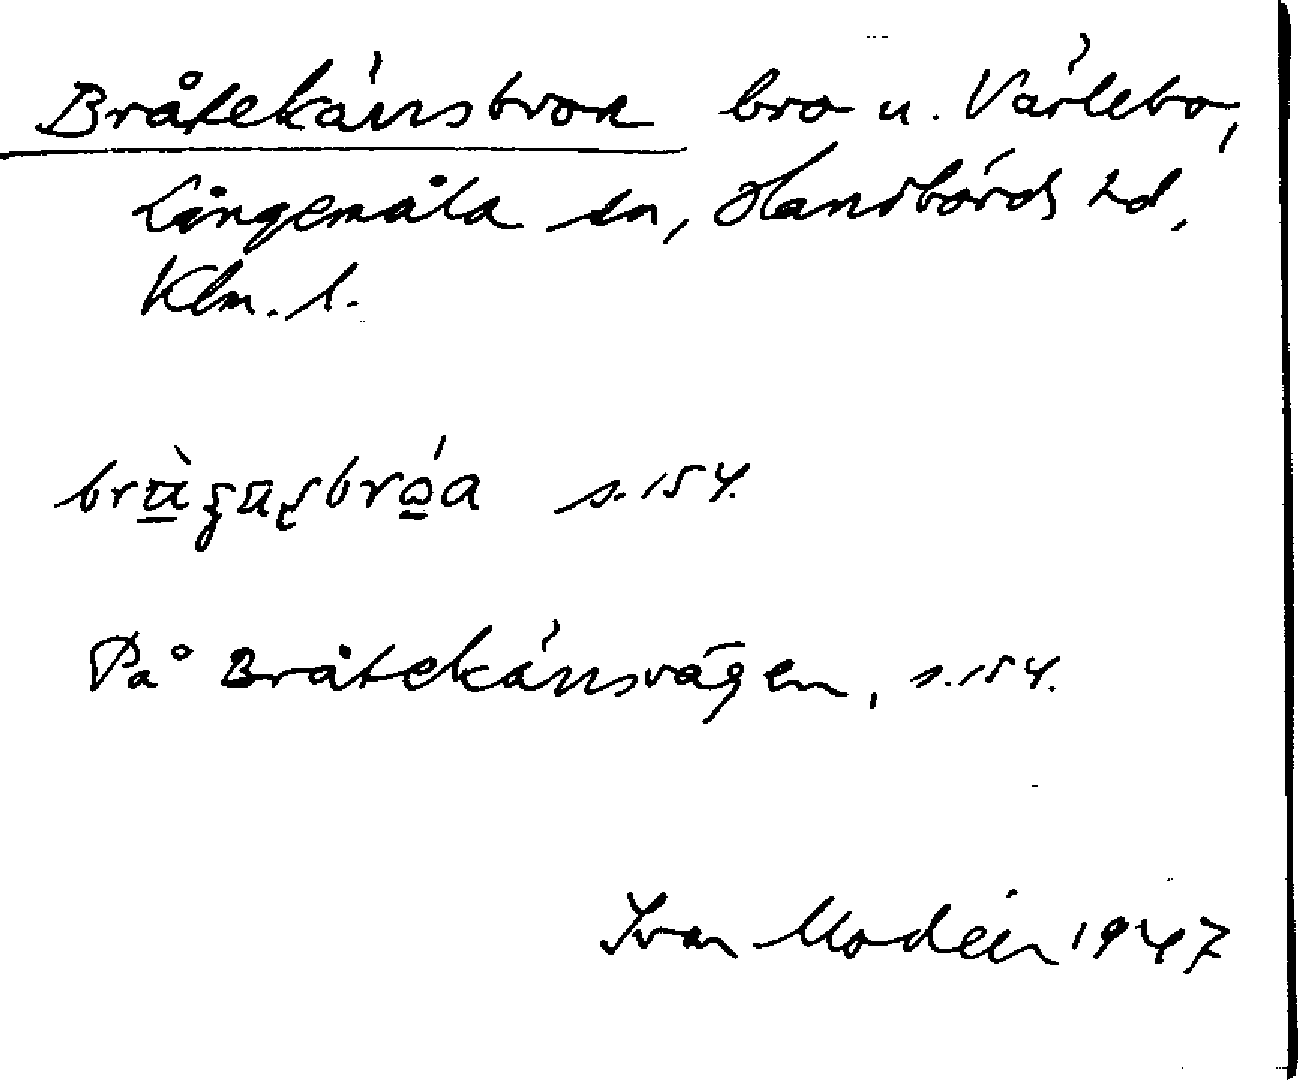 Bråtekärrsbron bro u. Värlebo,
Långemåla sn, Handbörds hd,
Klm. l.
s. 154.
På Bråtekärrsvägen, s. 154.
Ivar Modéer 1947